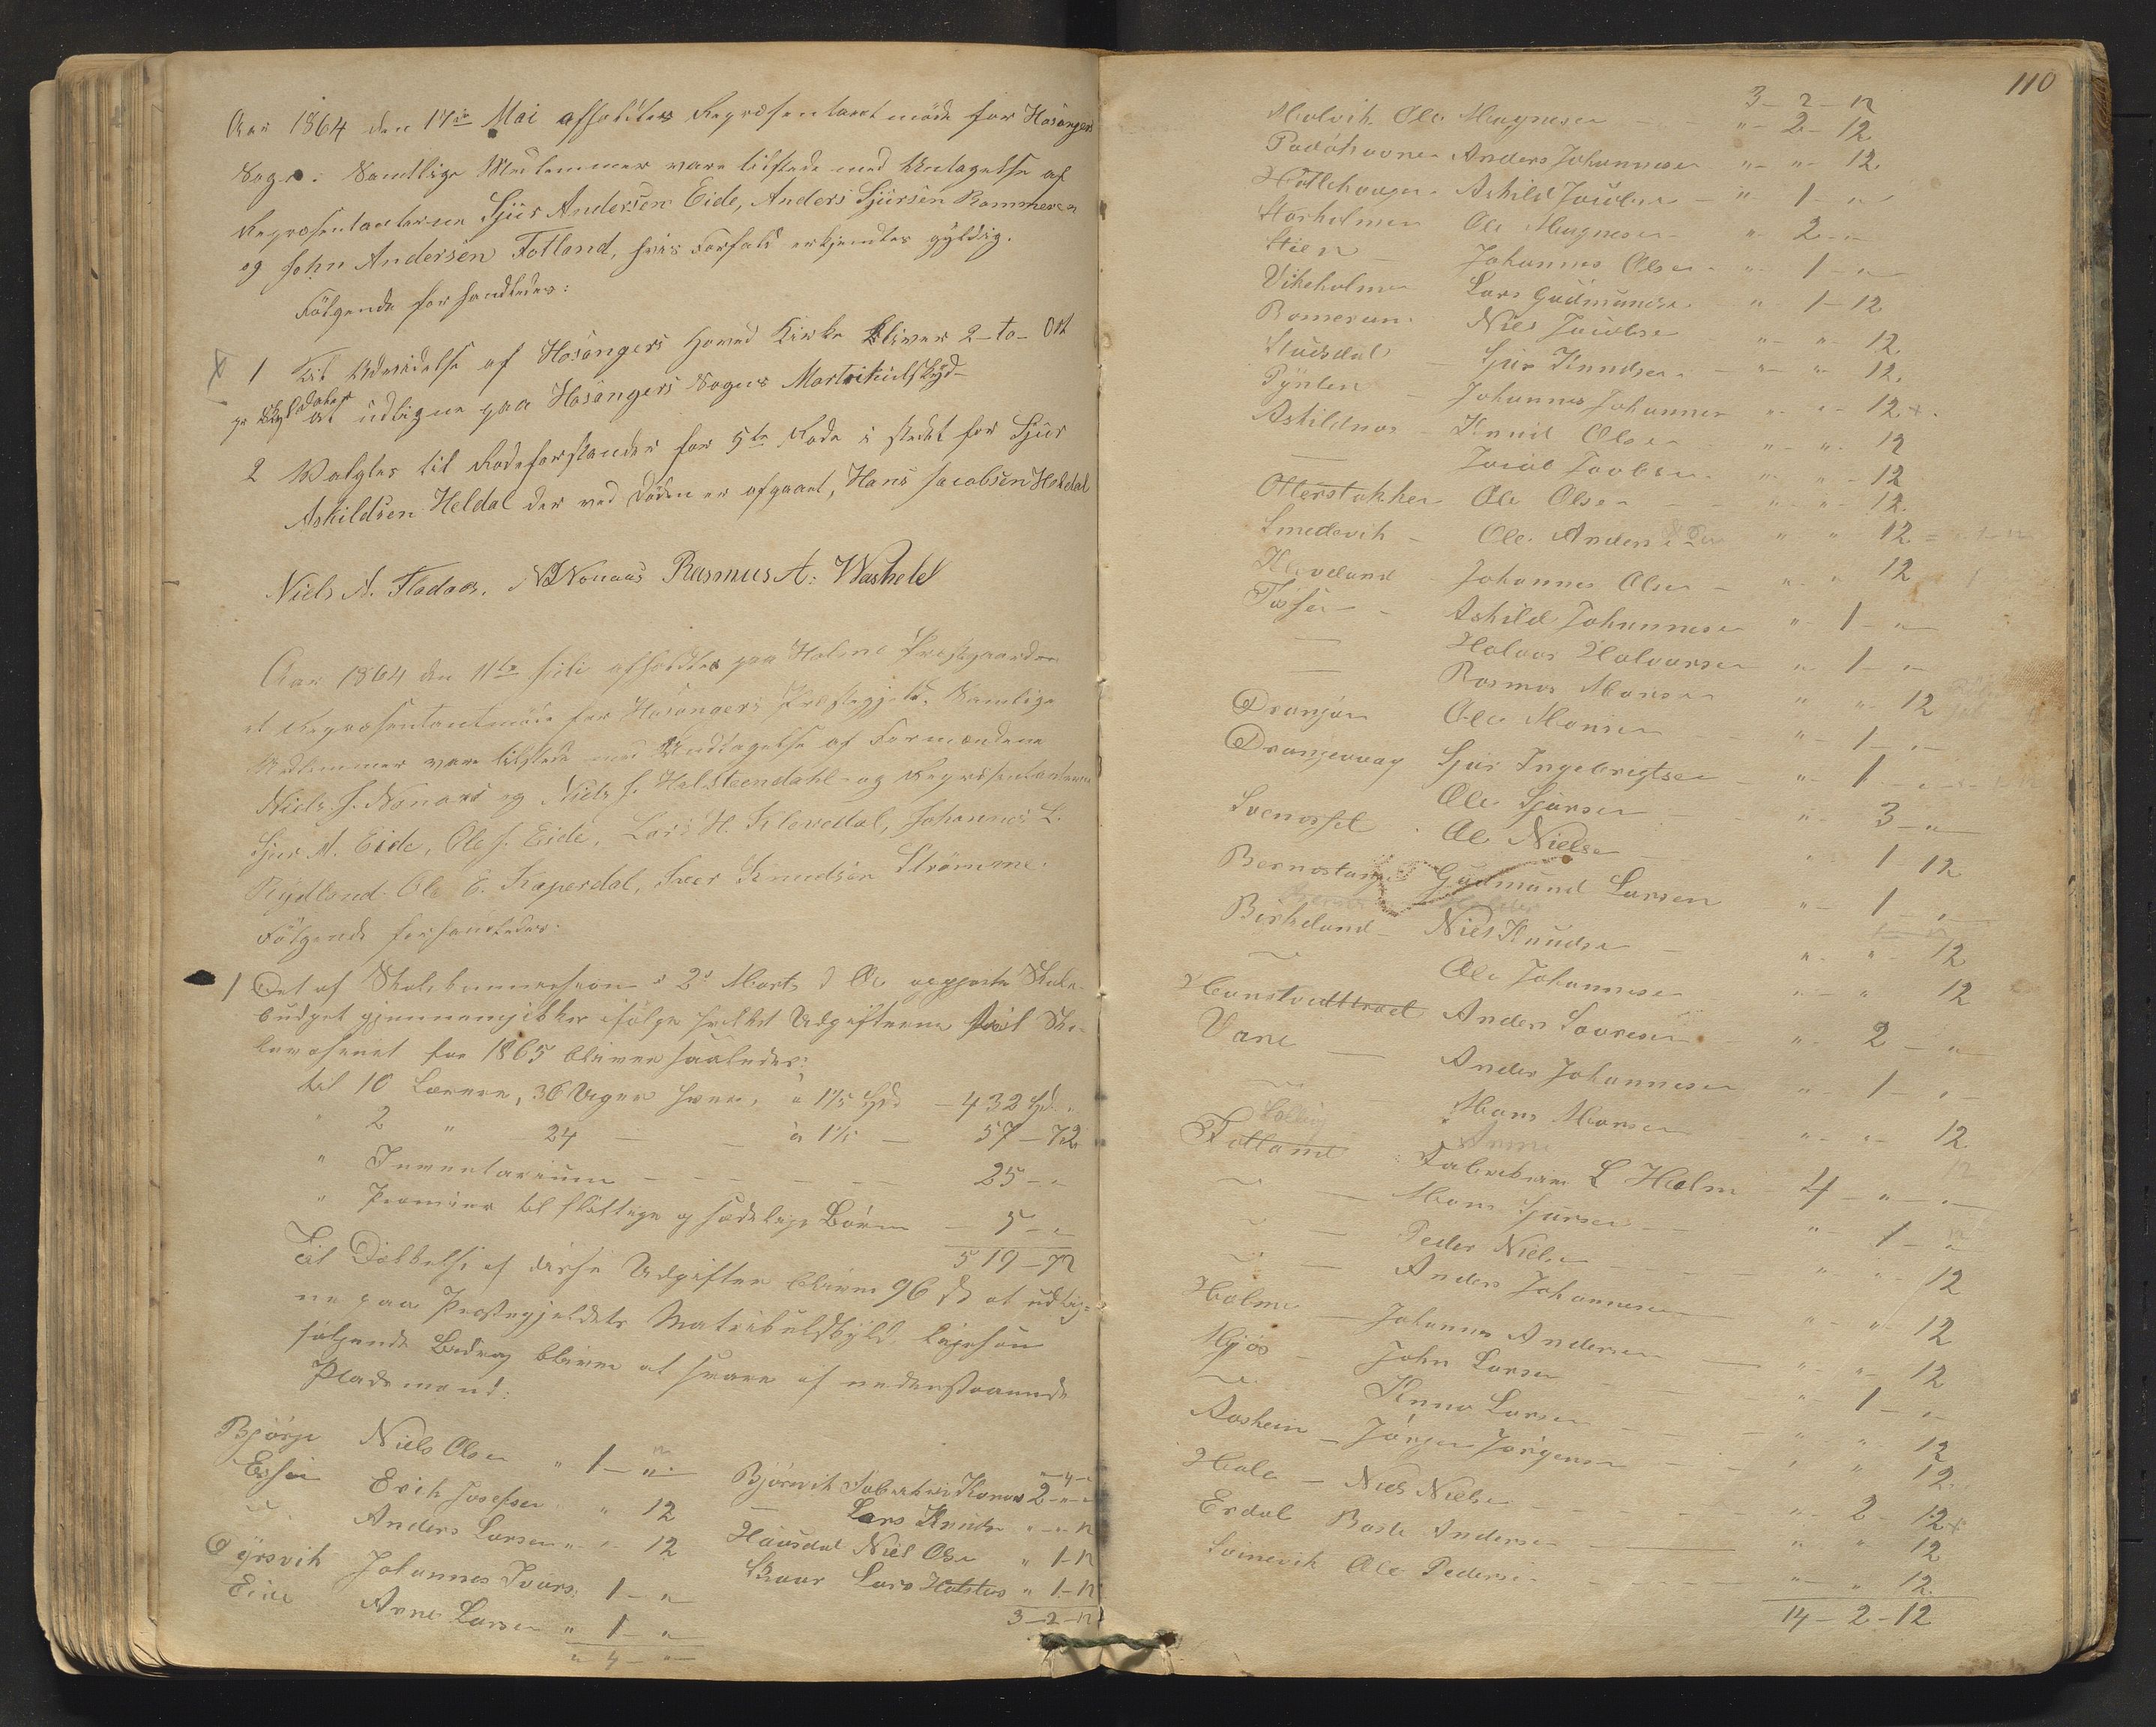 Aar 1864 den 17de Mai afholdtes Repræsentantmöde for Hosanger
Sogn. Samtlige Medlemmer vare tilstede med Undtagelse af
Repræsentanterne Sjur Andersen Eide, Anders Sjursen Rommeren
og John Andersen Fotland, hvis Forfald erkjendtes gyldig.
Fölgende forhandledes:
1 Til Udvidelse af Hosangers Hoved Kirke bliver 2 - to - Ort
pr Skylddaler at udligne paa Hosangers Sogns Martrikulskyld
2 Valgtes til Rodeforstander for 5te Rode i stedet for Sjur
Askildsen Heldal der ved Döden er afgaaet, Hans Jacobsen Heldal
Niels A. Fladaas. N J Nonaas Rasmus A: Washeld
Aar 1864 den 11te Juli afholdtes paa Holme Præstgaarden
et Repræsentantmöde for Hosangers Præstegjeld. Samtlige
Medlemmer vare tilstede med Undtagelse af Formændene
Niels J. Nonaas og Niels J. Holsteendahl og Repræsentanterne
Sjur A. Eide, Ole J. Eide, Lars H. Klevedal, Johannes L.
Rydland Ole E. Kaperdal, Iver Knudsen Strömme.
Fölgende forhandledes:
1 Det af Skolekommissionen 2 Marts d A opgjorte Skole
budget gjennemgikkes ifölge hvilket Udgifterne til Sko-
levæsenet for 1865 bliver saaledes:
til 10 Lærere, 36 Uger hver, a 1 1/5 Spd - 432 Spd "
" 2 " 24 - - a 1 1/5 - 57 - 72
" Inventarium - - - - - 25 - "
" Præmier til flittige og sædelige Börn - 5 - "
519 - 72
Til Dækkelse af disse Udgifter bliver 96 ß at udlig-
ne paa Præstegjeldets Matrikulskyld ligesom
fölgende Bidrag bliver at svare af nedenstaaende
Pladsmænd:
Björge Niels Olsen " 1 - "
Eshei Erik Josefsen " 12
" Anders Larsen " " 12
Dyrsvik Johannes Ivars. 1 - "
Eide Anne Larsen " 1 - "
" 4 - "
" 4 - "
Björnvik Fabrikör Konow 2 - " - "
- Lars Knuds " - " 12
Hausdal Niel Olsen " 1 - 12
Skaar Lars Halstus " 1 - 12
3 - 2 - 12
110
3 - 2 - 12
Molvik Ole Magnesen " - 2 - 12
Padöhavnen Anders Johannesen " - " - 12
Askild Jacobsen - " 1 - "
Storholmen Ole Magnesen " 2 - "
Stien - Johannes Olsen " - 1 - "
Vikeholmen Lars Gudmundse " 1 - 12
Romeren Niels Jacobse " - " - 12
Hausdal - Sjur Knudsen " - " 12
Pynten - Johannes Johannes " - " - 12 +
Askildnes - Knud Olsen " - " - 12
- Jacob Jacobsen " - " - 12
Otterstakken Ole Olsen - " - " - 12
Smedevik - Ole Anders " " 12
Kleveland - Johannes Olsen - " - " 12
Tosse - Askild Johannesen " - 1 - "
- Halvor Halvorsen " 1 - "
- Rasmus Monsen " " 12
Dranjen Ole Monsen - " - 1 - "
Dranjevaag Sjur Ingebrigtsen - " 1 - "
Ole Sjursen - " - 3 - "
Ole Nielsen " 1 - 12
Bernestange Gudmund Larsen " - 1 - "
Birkeland - Niels Knudsen - " - " 12
~ Ole Johannesen " - " 12
Hanstvedttræet Anders Lavresen " 2 - "
Vare - Anders Johannesen " - 1 - "
~ Mons Monsen " - " - 12
Fotland Fabrikör L Holm - 4 - " - "
~ - Mons Sjursen - " - 1 - "
~ - Peder Nielsen - " " 12
~ - Anders Johannesen - " - " - 12
Holme - Johannes Andersen - " - " - 12
Mjös - John Larsen - " - 1 - "
~ Knud Larsen - " " 12
Aasheim - Jörgen Jörgensen - " " 12
Hole - Niels Nielsen - - " - 2 - 12 +
Erdal Baste Andersen - " " 12
Svinevik Ole Pedersen - " - " 12
14 - 2 - 12